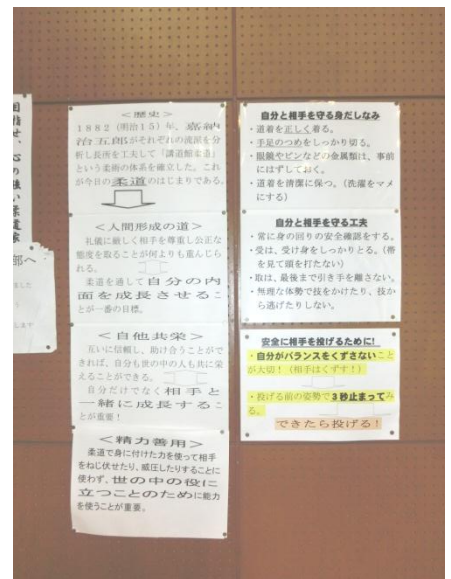 目指せ、心の強い柔道家
部へ
ました
します
＜歴史＞
１８８２（明治１５）年、嘉納
治五郎がそれぞれの流派を分
析し長所を工夫して「講道館柔道」
という柔術の体系を確立した。これ
が今日の柔道のはじまりである。
＜人間形成の道＞
礼儀に厳しく相手を尊重し公正な
態度を取ることが何よりも重んじら
れる。
柔道を通して自分の内
面を成長させるこ
とが一番の目標。
＜自他共栄＞
互いに信頼し、助け合うことがで
きれば、自分も世の中の人も共に栄
えることができる。
自分だけでなく相手と
一緒に成長するこ
とが重要！
＜精力善用＞
柔道で身に付けた力を使って相手
をねじ伏せたり、威圧したりすることに
使わず、世の中の役に
立つことのために能力
を使うことが重要。
自分と相手を守る身だしなみ
・道着を正しく着る。
・手足のつめをしっかり切る。
・眼鏡やピンなどの金属類は、事前
にはずしておく。
・道着を清潔に保つ。（洗濯をマメ
にする）
自分と相手を守る工夫
・常に身の回りの安全確認をする。
・受は、受け身をしっかりとる。（帯
を見て頭を打たない）
・取は、最後まで引き手を離さない。
・無理な体勢で技をかけたり、技か
ら逃げたりしない。
安全に相手を投げるために！
・自分がバランスをくずさないこと
が大切！（相手はくずす！）
・投げる前の姿勢で３秒止まってみ
る。
できたら投げる！